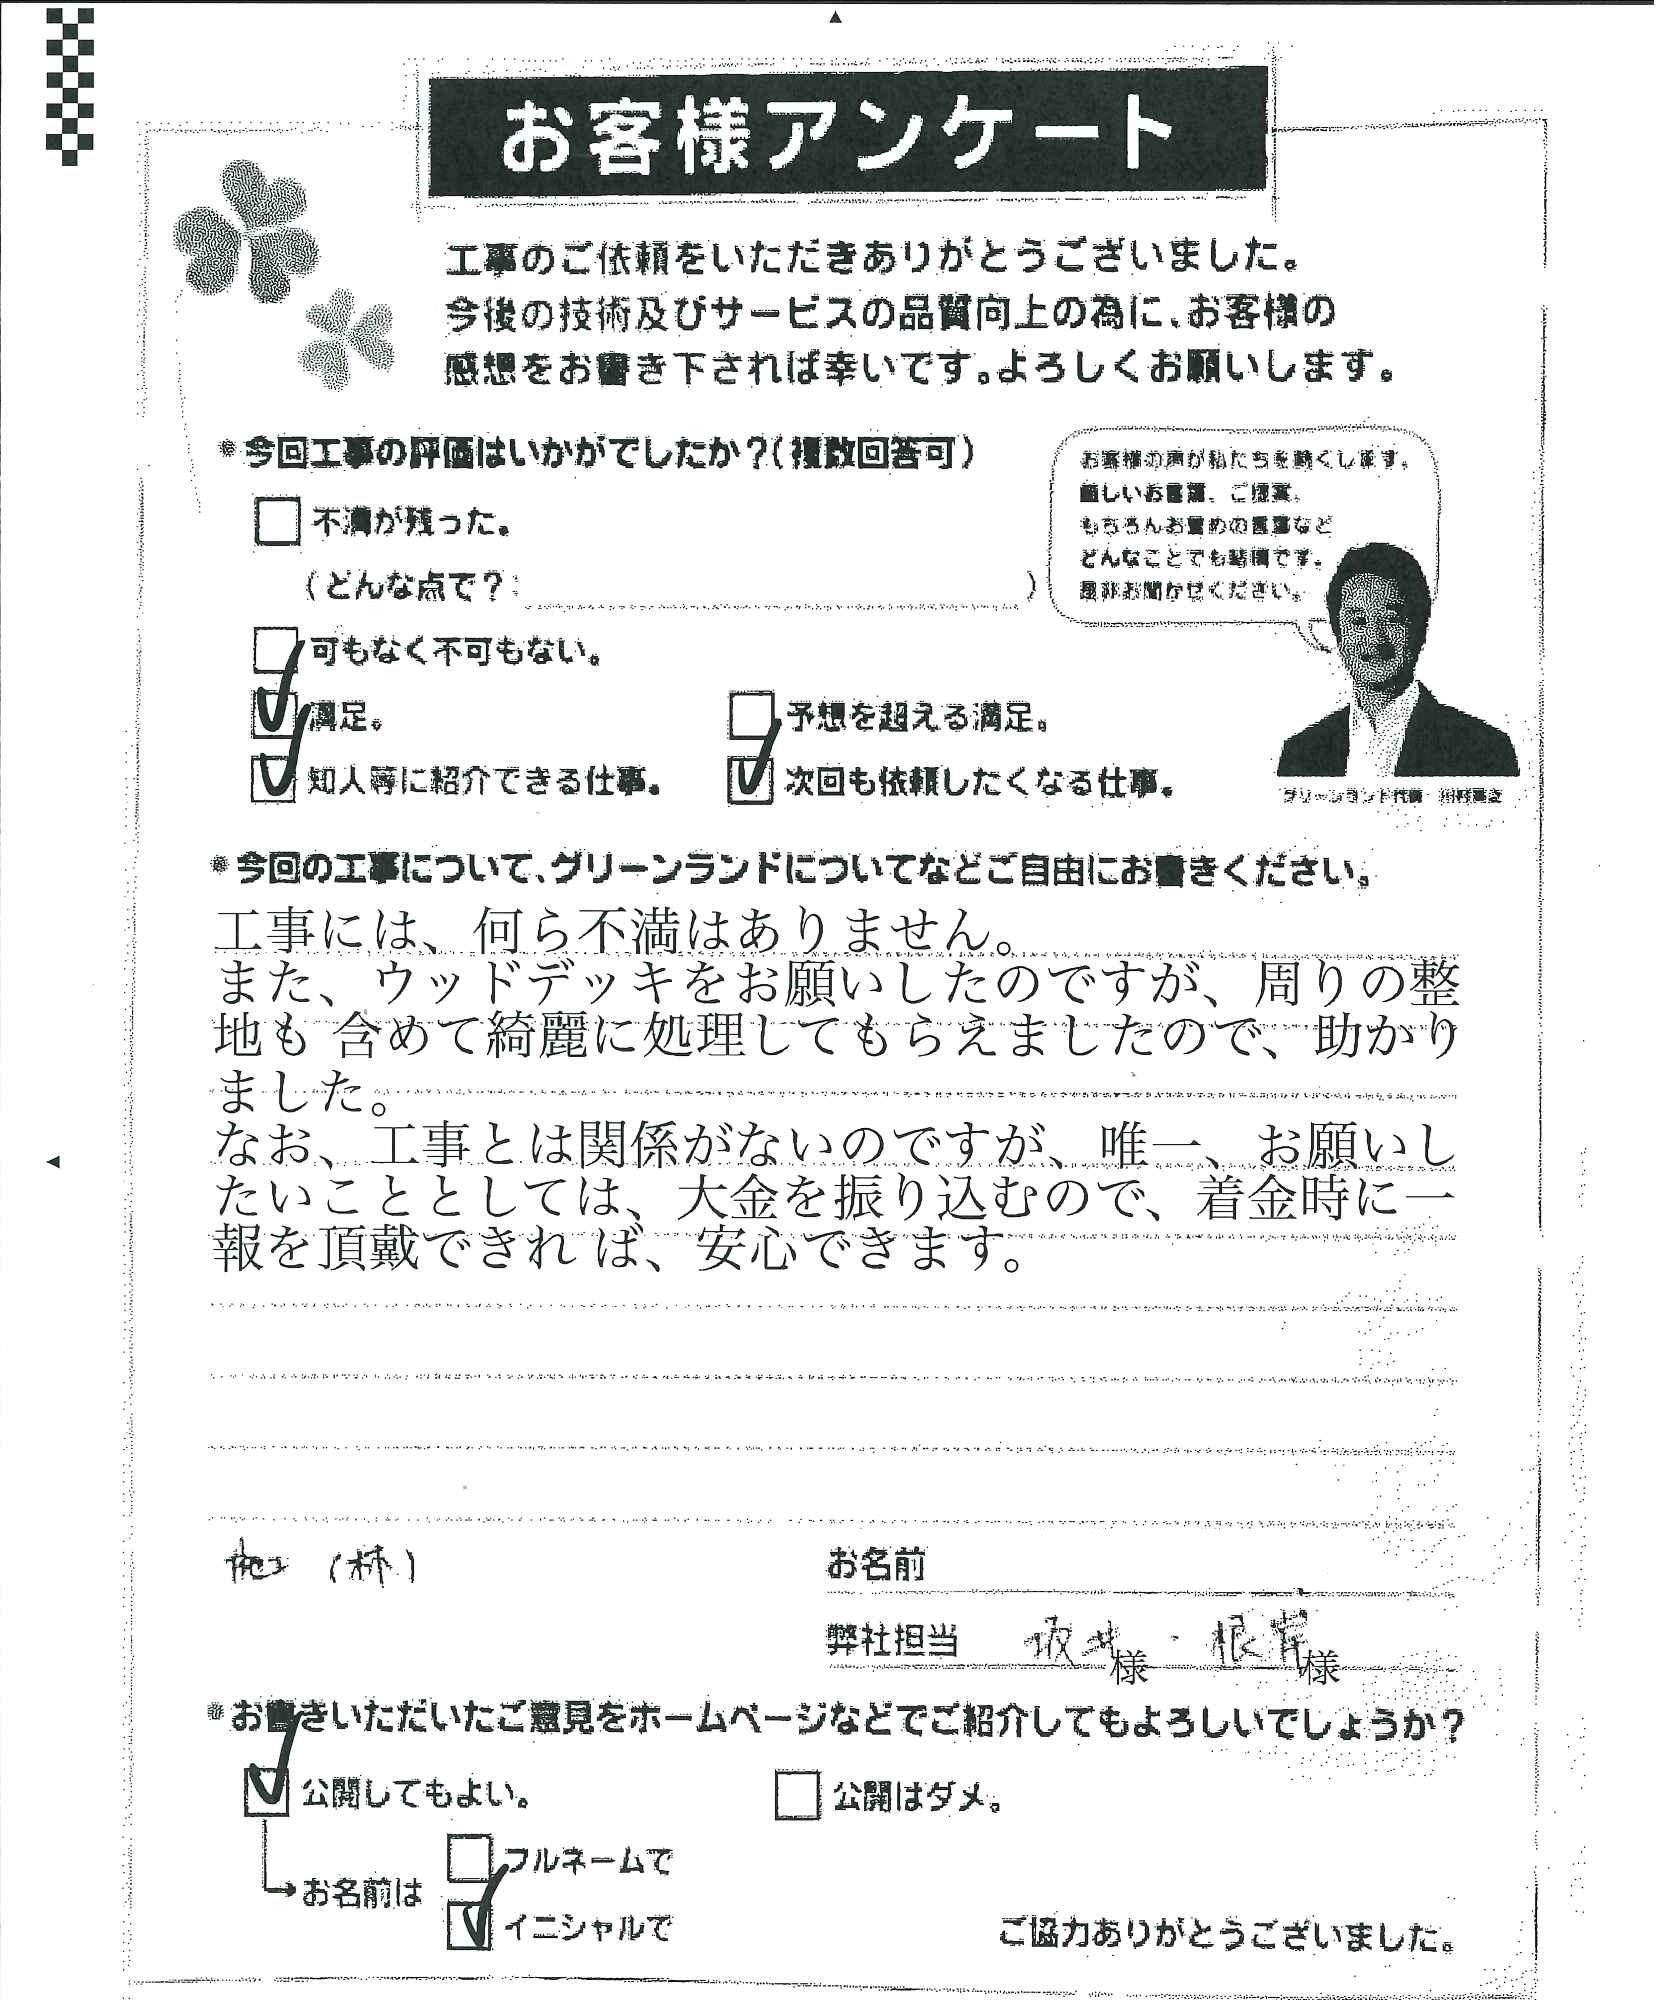 お客様アンケート
工事のご依頼をいただきありがとうございました。
今後の技術及びサービスの品質向上の為に、お客様の
感想をお書き下されば幸いです。よろしくお願いします。
今回工事の評価はいかがでしたか？（複数回答可）
お客様の声が私たちを熱くします。
厳しいお言葉、ご提案、
もちろんお誉めの言葉など
どんなことでも結構です。
是非お聞かせください。
不満が残った。
（どんな点で？： ）
可もなく不可もない。
満足。
予想を超える満足。
知人等に紹介できる仕事。
次回も依頼したくなる仕事。
グリーンランド代表
今回の工事について、グリーンランドについてなどご自由にお書きください。
工事には、何ら不満はありません。
また、ウッドデッキをお願いしたのですが、周りの整
地も 含めて綺麗に処理してもらえましたので、助かり
ました。
なお、工事とは関係がないのですが、唯一、お願いし
たいこととしては、大金を振り込むので、着金時に一
報を頂戴できれ ば、安心できます。
お名前
弊社担当 坂井様・根岸様
お書きいただいたご意見をホームページなどでご紹介してもよろしいでしょうか？
公開してもよい。
公開はダメ。
お名前は
フルネームで
イニシャルで
ご協力ありがとうございました。